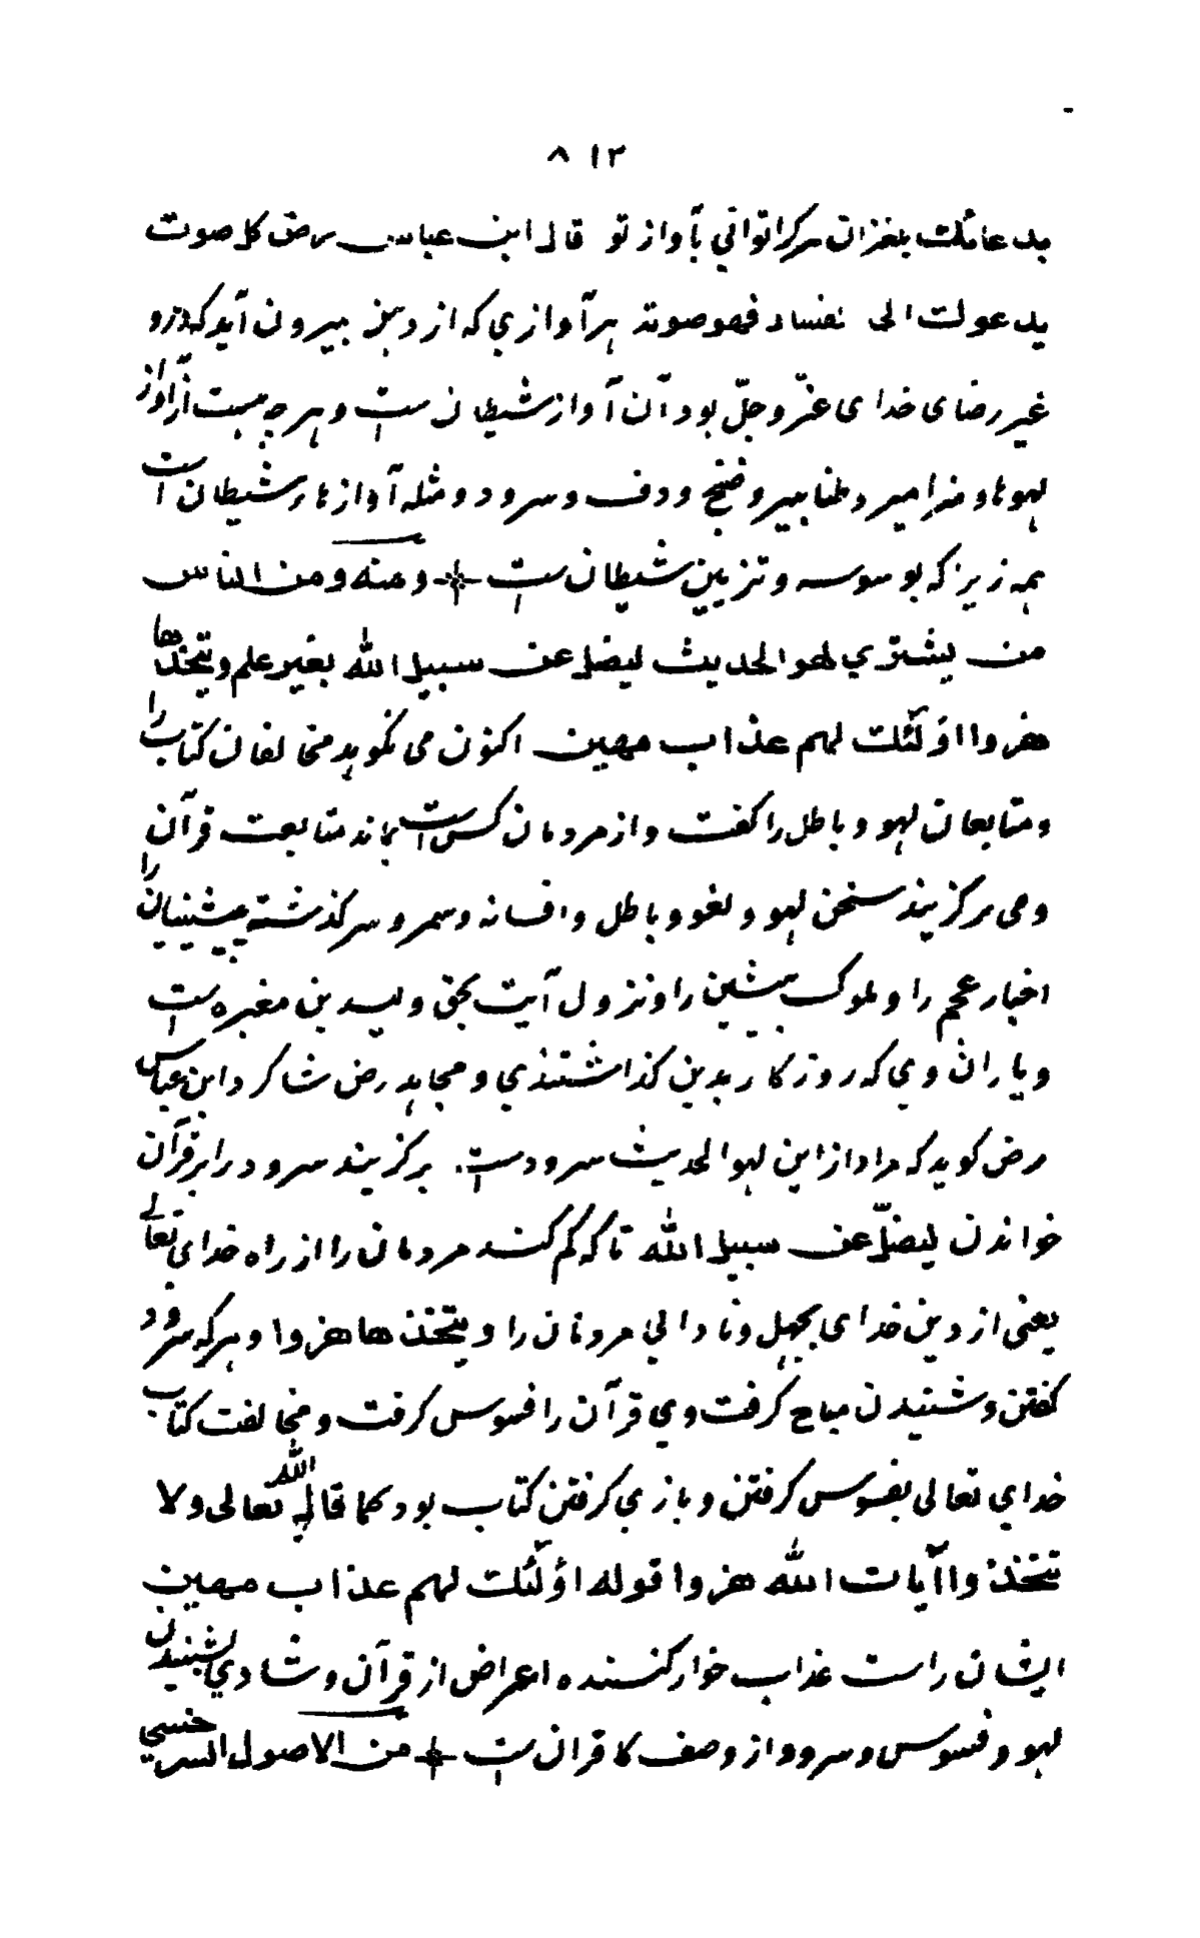 ۸۱۲
بدعائك بلغزان هركرا تواني بآواز تو قال ابن عباس رض كل صوت
يدعوك الى الفساد فهو صوته هر آوازي كه از دهن بيرون آيد كه درو
غير رضاى خداى عزّ و جلّ بود آن آواز شيطان ست و هر چه هست از آواز
لهوها و مزامير و طنابير و ضنج و دف و سرود و مثله آوازها شيطان است
همه زيرا كه بوسوسه و تزيين شيطان ست ومنه ومن الناس
من يشتري لهو الحديث ليضل عن سبيل الله بغير علم ويتخذها
هزوا اولئك لهم عذاب مهين اكنون مى نكوهد مخالفان كتاب را
و متابعان لهو و باطل را كفت و از مردمان كس است بماند متابعت قرآن را
و مى بركزيند سخن لهو و لغو و باطل و افسانه و سمر و سركذشته پيشينيان
اخبار عجم را و ملوك پيشين را و نزول آيت بحق وليد بن مغيره ست
و ياران وي كه روزكار بدين كذاشتندي و مجاهد رض شاكرد ابن عباس
رض كويد كه مراد از اين لهو الحديث سرودست بركزيند سرود را بر قرآن
خواندن ليضلّ عن سبيل الله تا كه كم كند مردمان را از راه خداي تعالى
يعنى از دين خداى بجهل و نادانى مردمان را ويتخذها هزوا و هر كه سرود
كفتن و شنيدن مباح كرفت وي قرآن را فسوس كرفت و مخالفت كتاب
خداي تعالى بفسوس كرفتن و بازي كرفتن كتاب بود كما قال الله تعالى ولا
تتخذوا آيات الله هزوا قوله اولئك لهم عذاب مهين
ايشان راست عذاب خوار كننده اعراض از قرآن و شادي بشنيدن
لهو و فسوس و سرود از وصف كافران ست من الاصول السرخسي